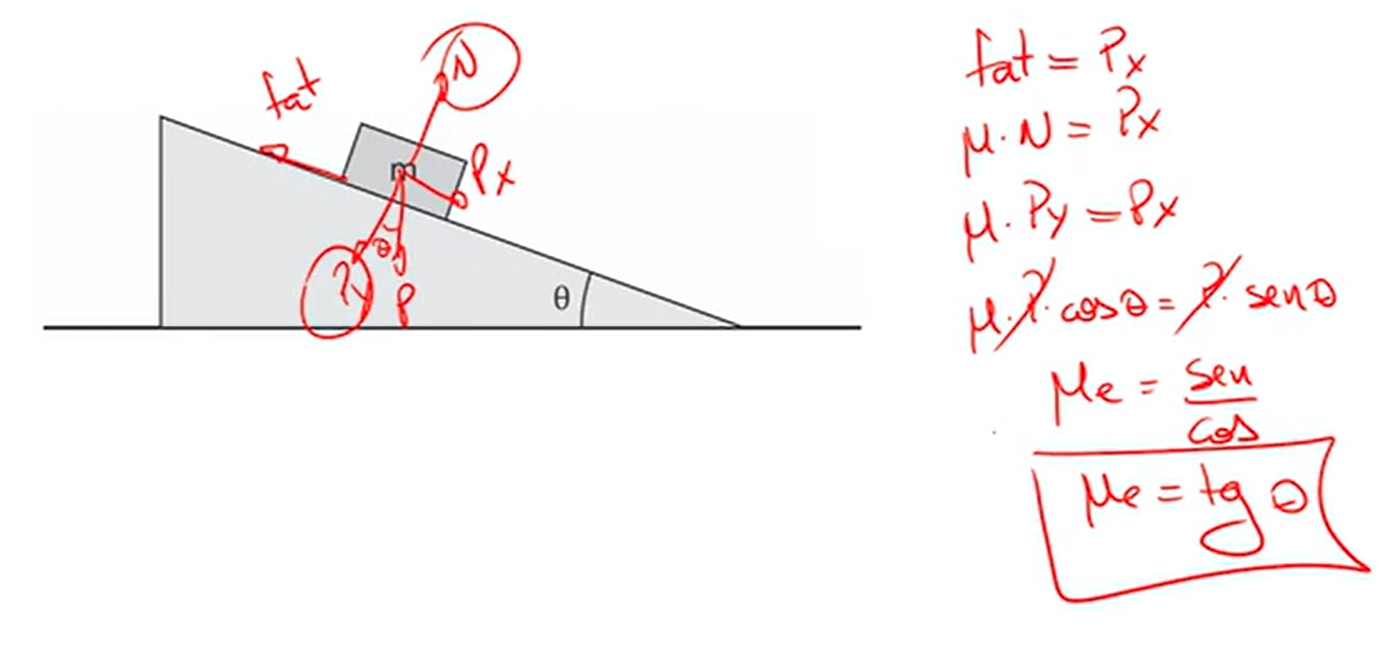 fat
N
m
Px
θ
Py
P
θ
fat = Px
μ·N = Px
μ·Py = Px
μ·P·cosθ = P·senθ
μe = sen
cos
μe = tg θ